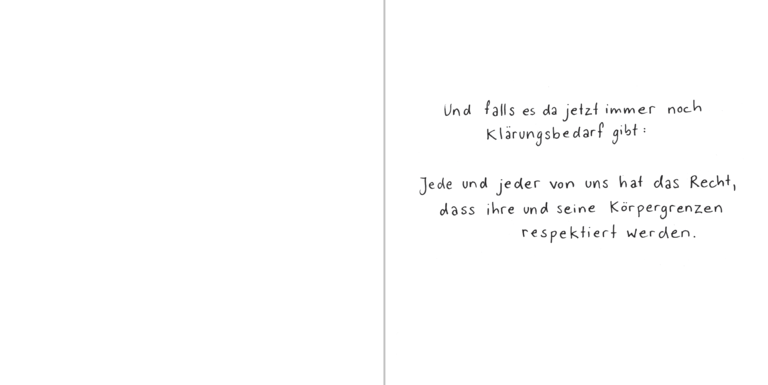 Und falls es da jetzt immer noch
Klärungsbedarf gibt:
Jede und jeder von uns hat das Recht,
dass ihre und seine Körpergrenzen
respektiert werden.